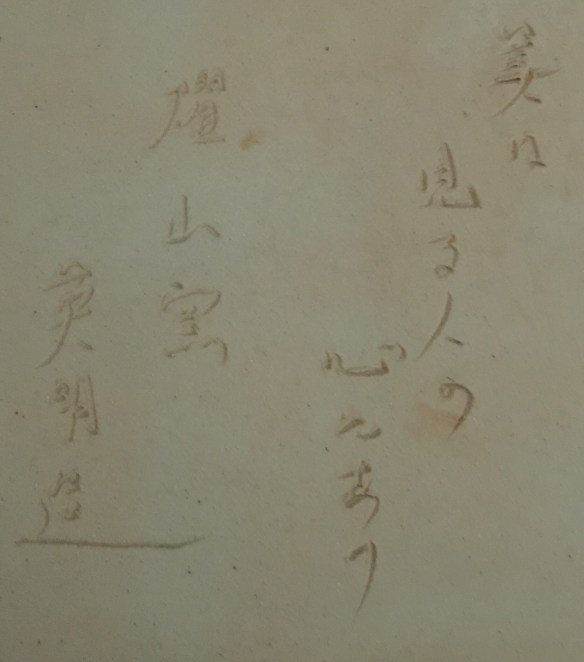 美は
見る人の
心にあり
櫂山窯
英明造